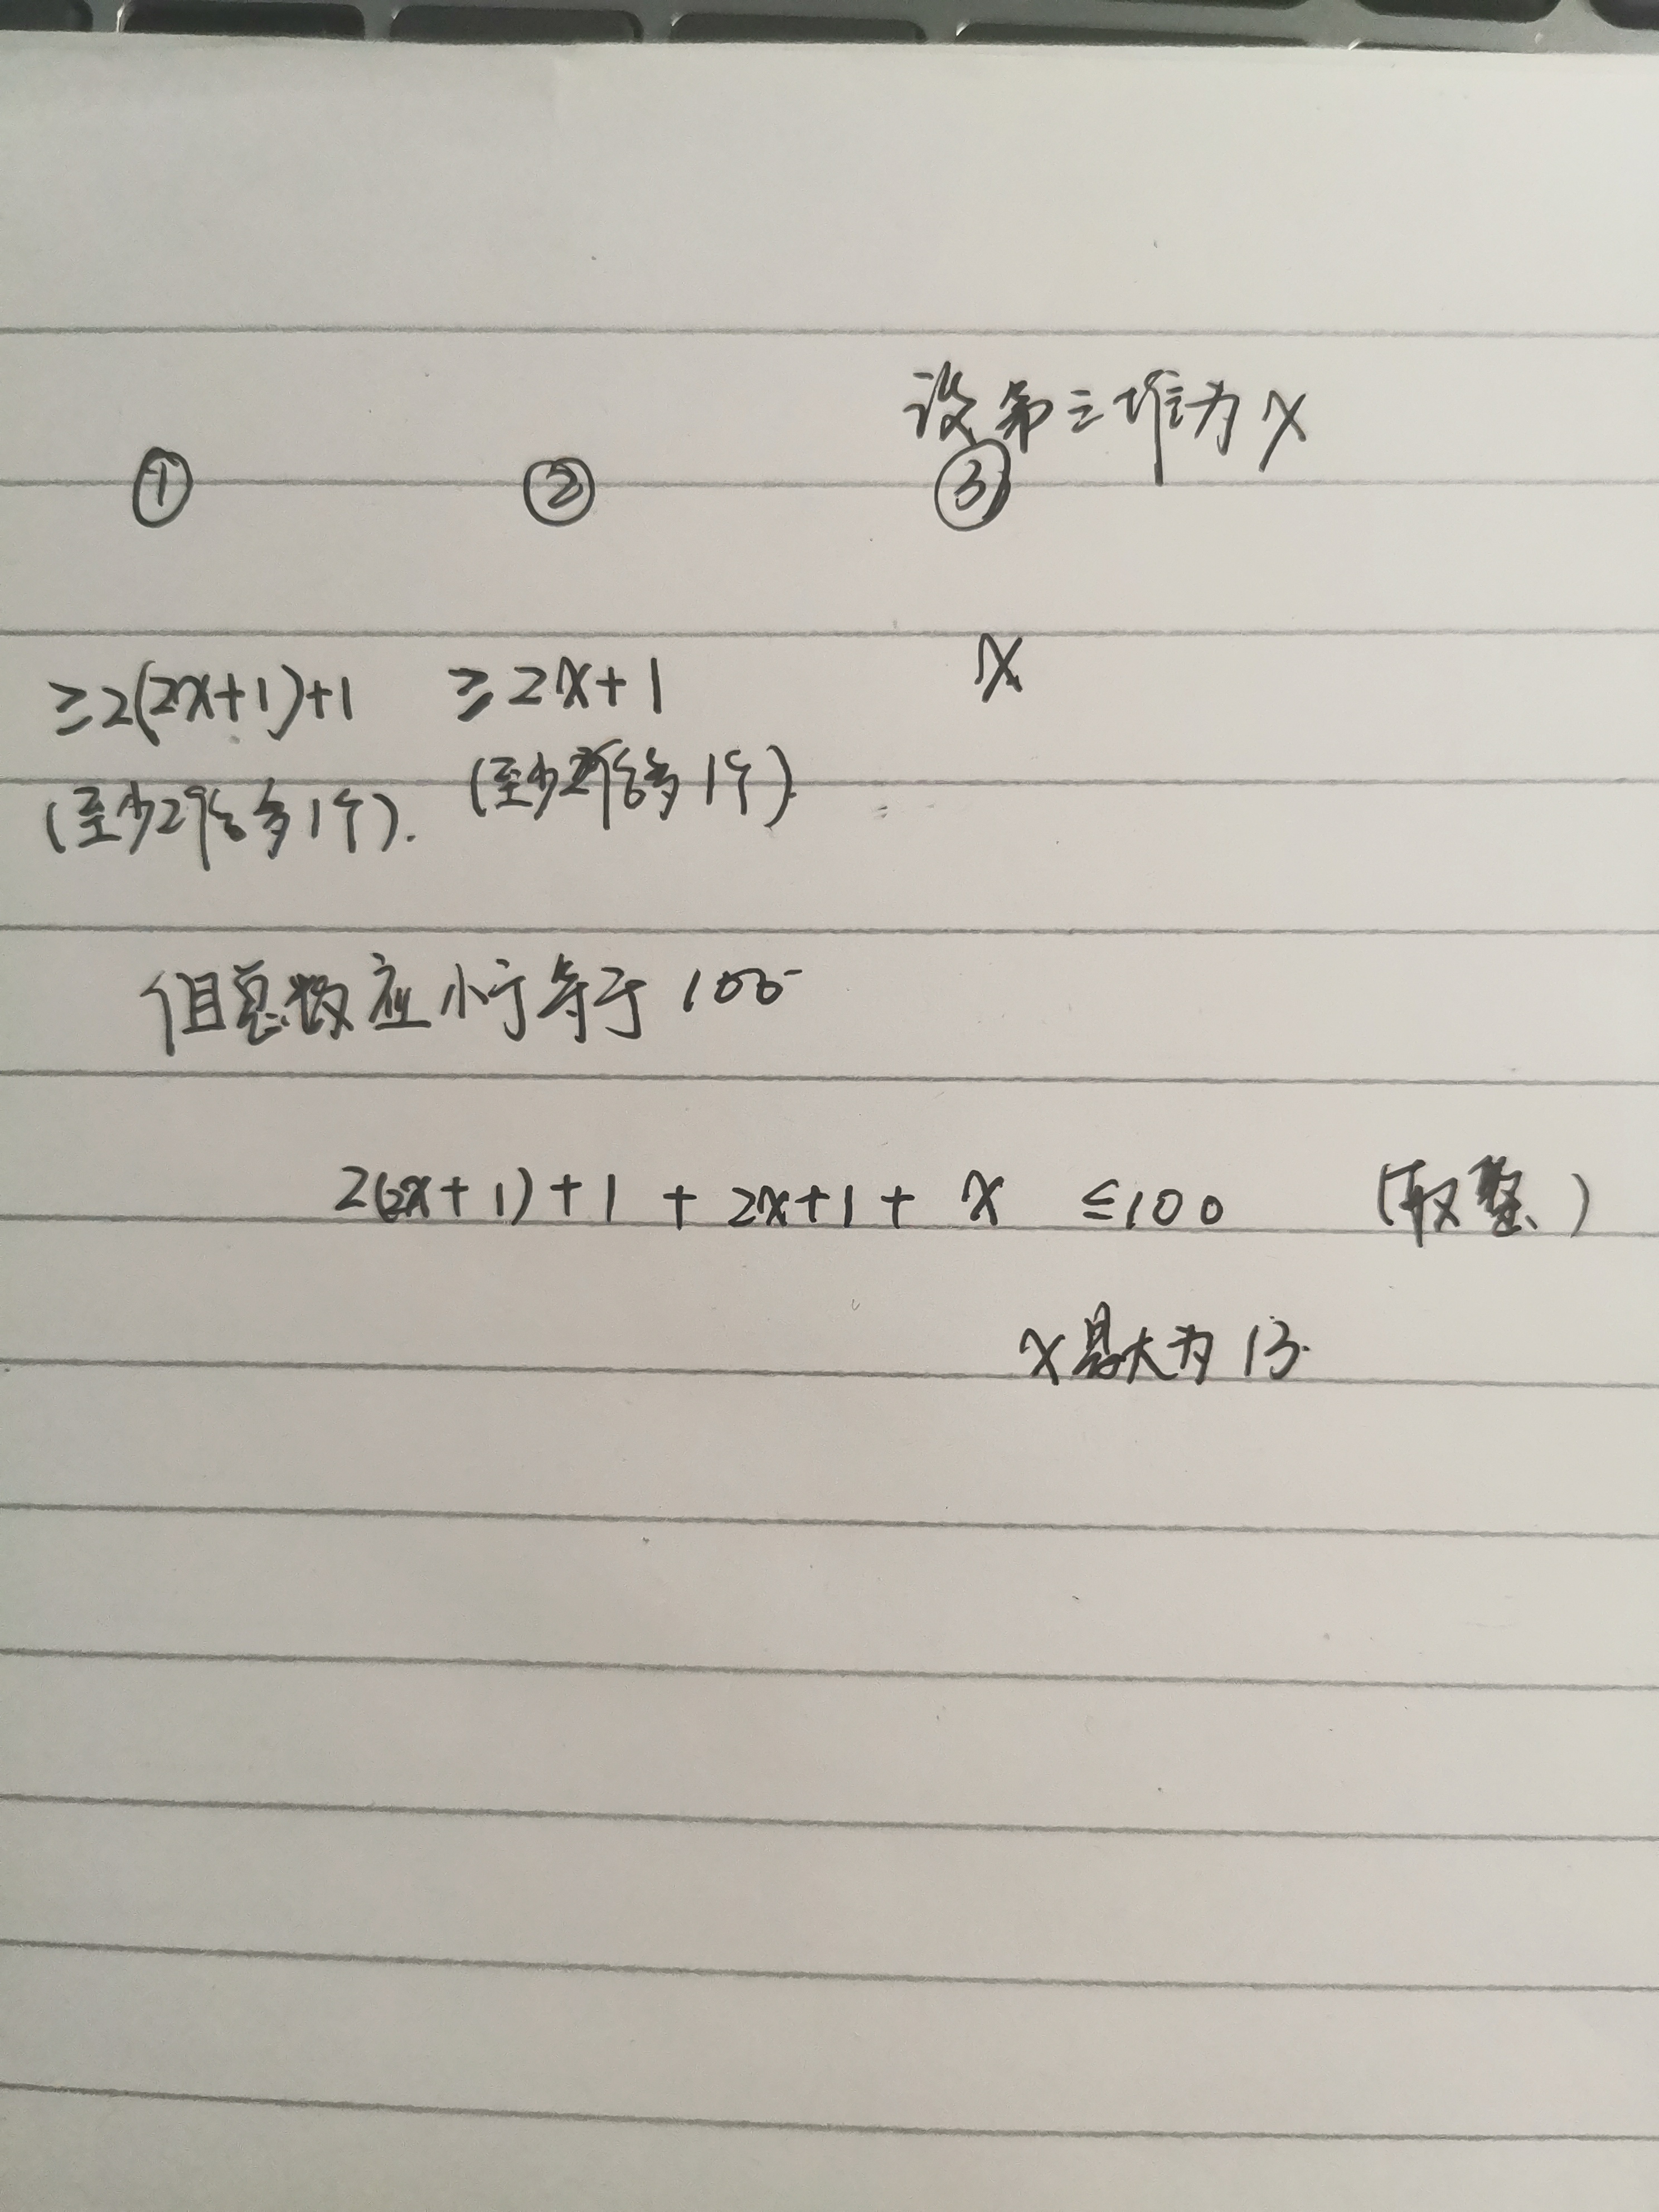 设第三堆为x
① ② ③
≥2(2x+1)+1 ≥2x+1 x
(至少2倍多1个). (至少2倍多1个).
但总数应小于等于100
2(2x+1)+1+2x+1+x ≤100 (取整)
x最大为13.